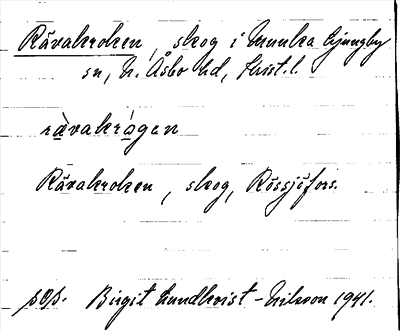 Rävakroken, skog i Munka Ljungby
sn, N. Åsbo hd, Krist. l.
rävakrågen
Rävakroken, skog, Rössjöfors.
pop. Birgit Lundkvist-Nilsson 1941.